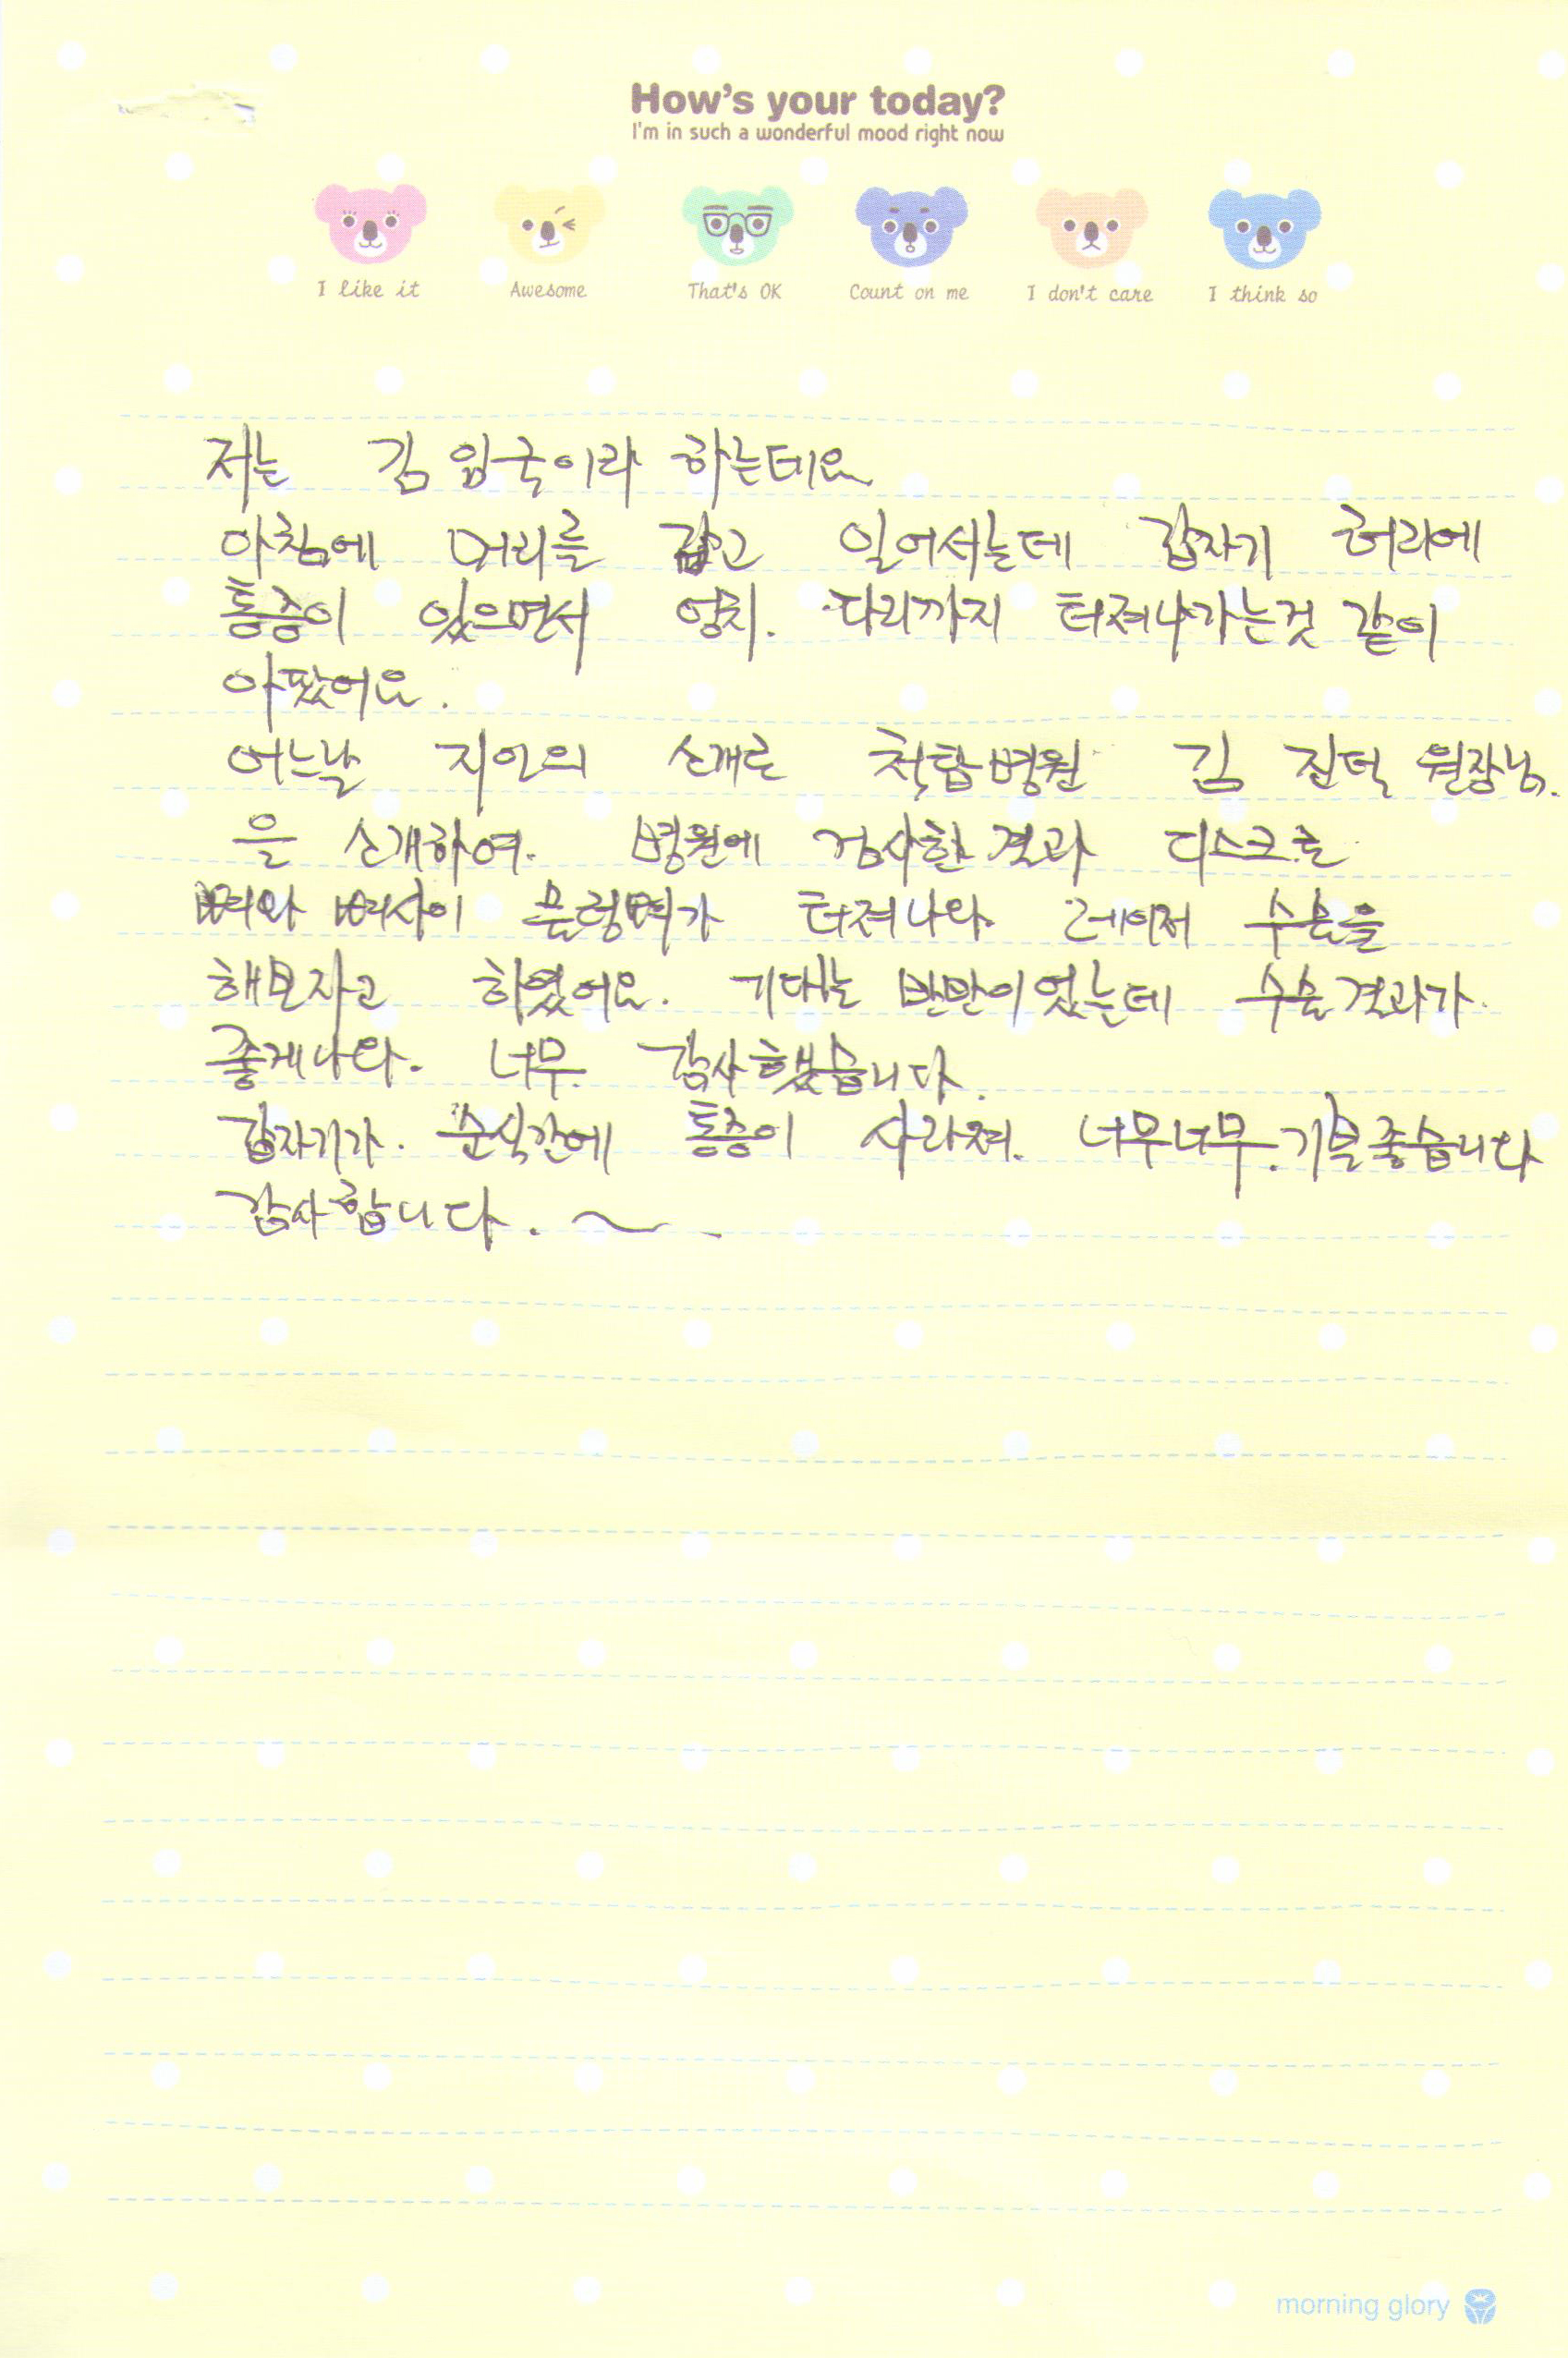 How's your today?
I'm in such a wonderful mood right now
I like it Awesome That's OK Count on me I don't care I think so
저는 김 임국이라 하는데요
아침에 머리를 감고 일어서는데 갑자기 허리에
통증이 있으면서 엉치. 다리까지 터져나가는것 같이
아팠어요.
어느날 지인의 소개로 척탑병원 김 진덕 원장님.
을 소개하여. 병원에 검사한 결과 디스크로
뼈와 뼈사이 물렁뼈가 터져나와 레이저 수술을
해보자고 하였어요. 기대는 반반이었는데 수술결과가
좋게나와. 너무 감사했습니다.
갑자기가. 순식간에 통증이 사라져. 너무너무.기분좋습니다
감사합니다. ~
morning glory